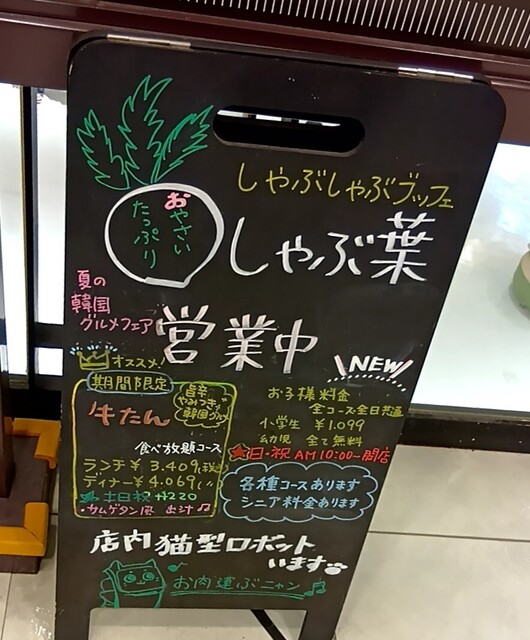 しゃぶしゃぶブッフェ
おやさい
たっぷり
しゃぶ葉
夏の
韓国
グルメフェア
営業中
オススメ!
期間限定
旨辛
やみつき
牛たん
食べ放題コース
ランチ¥3.409(税込)
ディナー¥4.069(〃)
★土日祝 +¥220
・サムゲタン風 出汁♫
NEW
お子様料金
全コース全日共通
小学生 ¥1.099
幼児 全て無料
★日・祝 AM10:00~開店
各種コースあります
シニア料金あります
店内猫型ロボット
います
お肉運ぶニャン♫